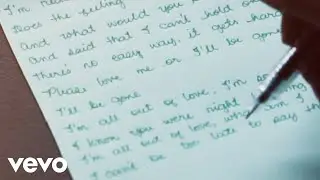 I'm
Does the feeling
And what would you
And said that I can't hold o
There's no easy way, it gets hard
Please love me or I'll be gone
I'll be gone
I'm all out of love, I'm so
I know you were right
I'm all out of love, what am I
I can't be too late to
vevo